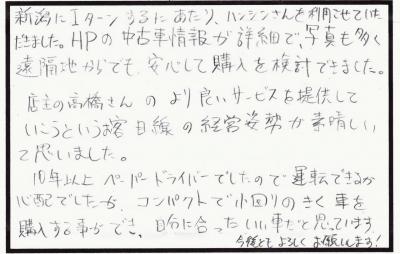 新潟にIターンするにあたり、ハンシンさんを利用させていた
だきました。HPの中古車情報が詳細で、写真も多く
遠隔地からでも、安心して購入を検討できました。
店主の高橋さんのより良いサービスを提供して
いこうというお客目線の経営姿勢が素晴しい
と思いました。
10年以上ペーパードライバーでしたので運転できるか
心配でしたが、コンパクトで小回りのきく車を
購入する事ができ、自分に合ったいい車だと思っています。
今後ともよろしくお願いします!